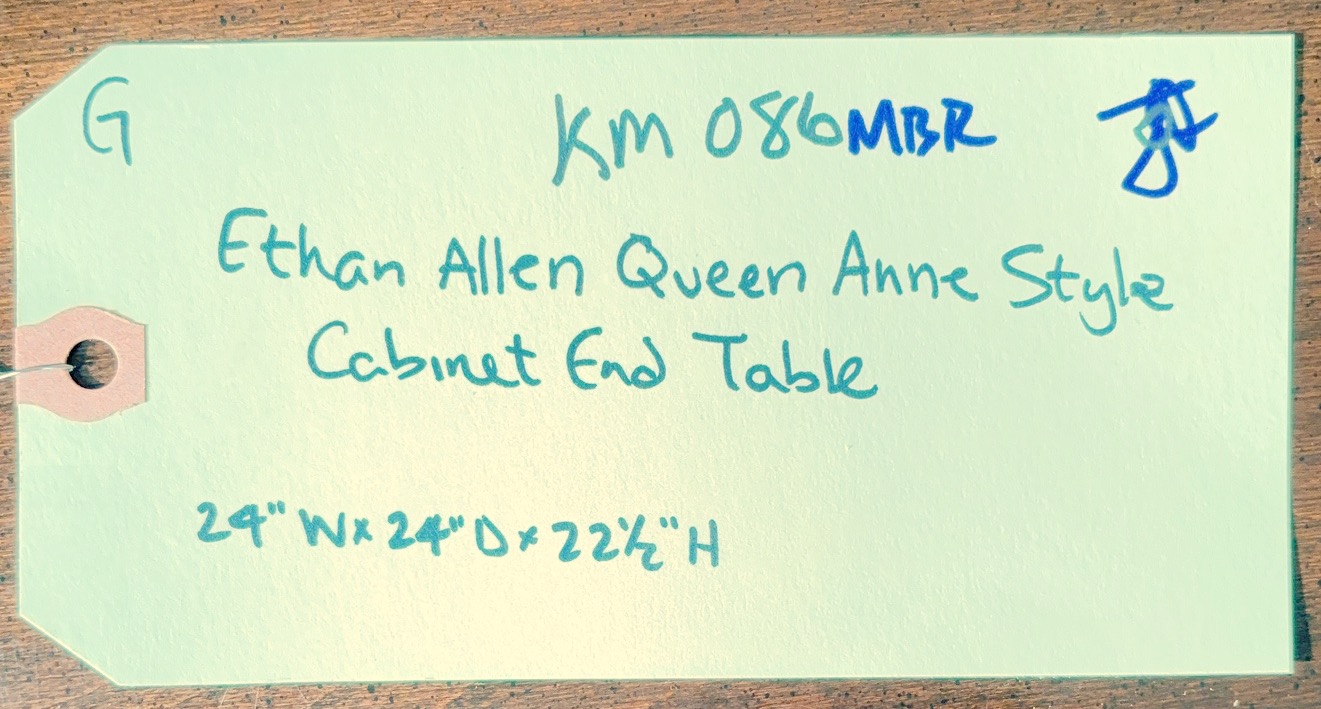 G KM 086MBR
Ethan Allen Queen Anne Style
Cabinet End Table
24" W x 24" D x 22 1/2" H